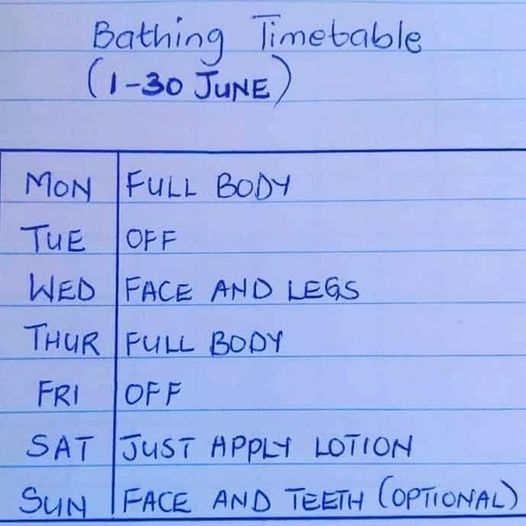 Bathing Timetable
(1-30 JUNE)
MON FULL BODY
TUE OFF
WED FACE AND LEGS
THUR FULL BODY
FRI OFF
SAT JUST APPLY LOTION
SUN FACE AND TEETH (OPTIONAL)